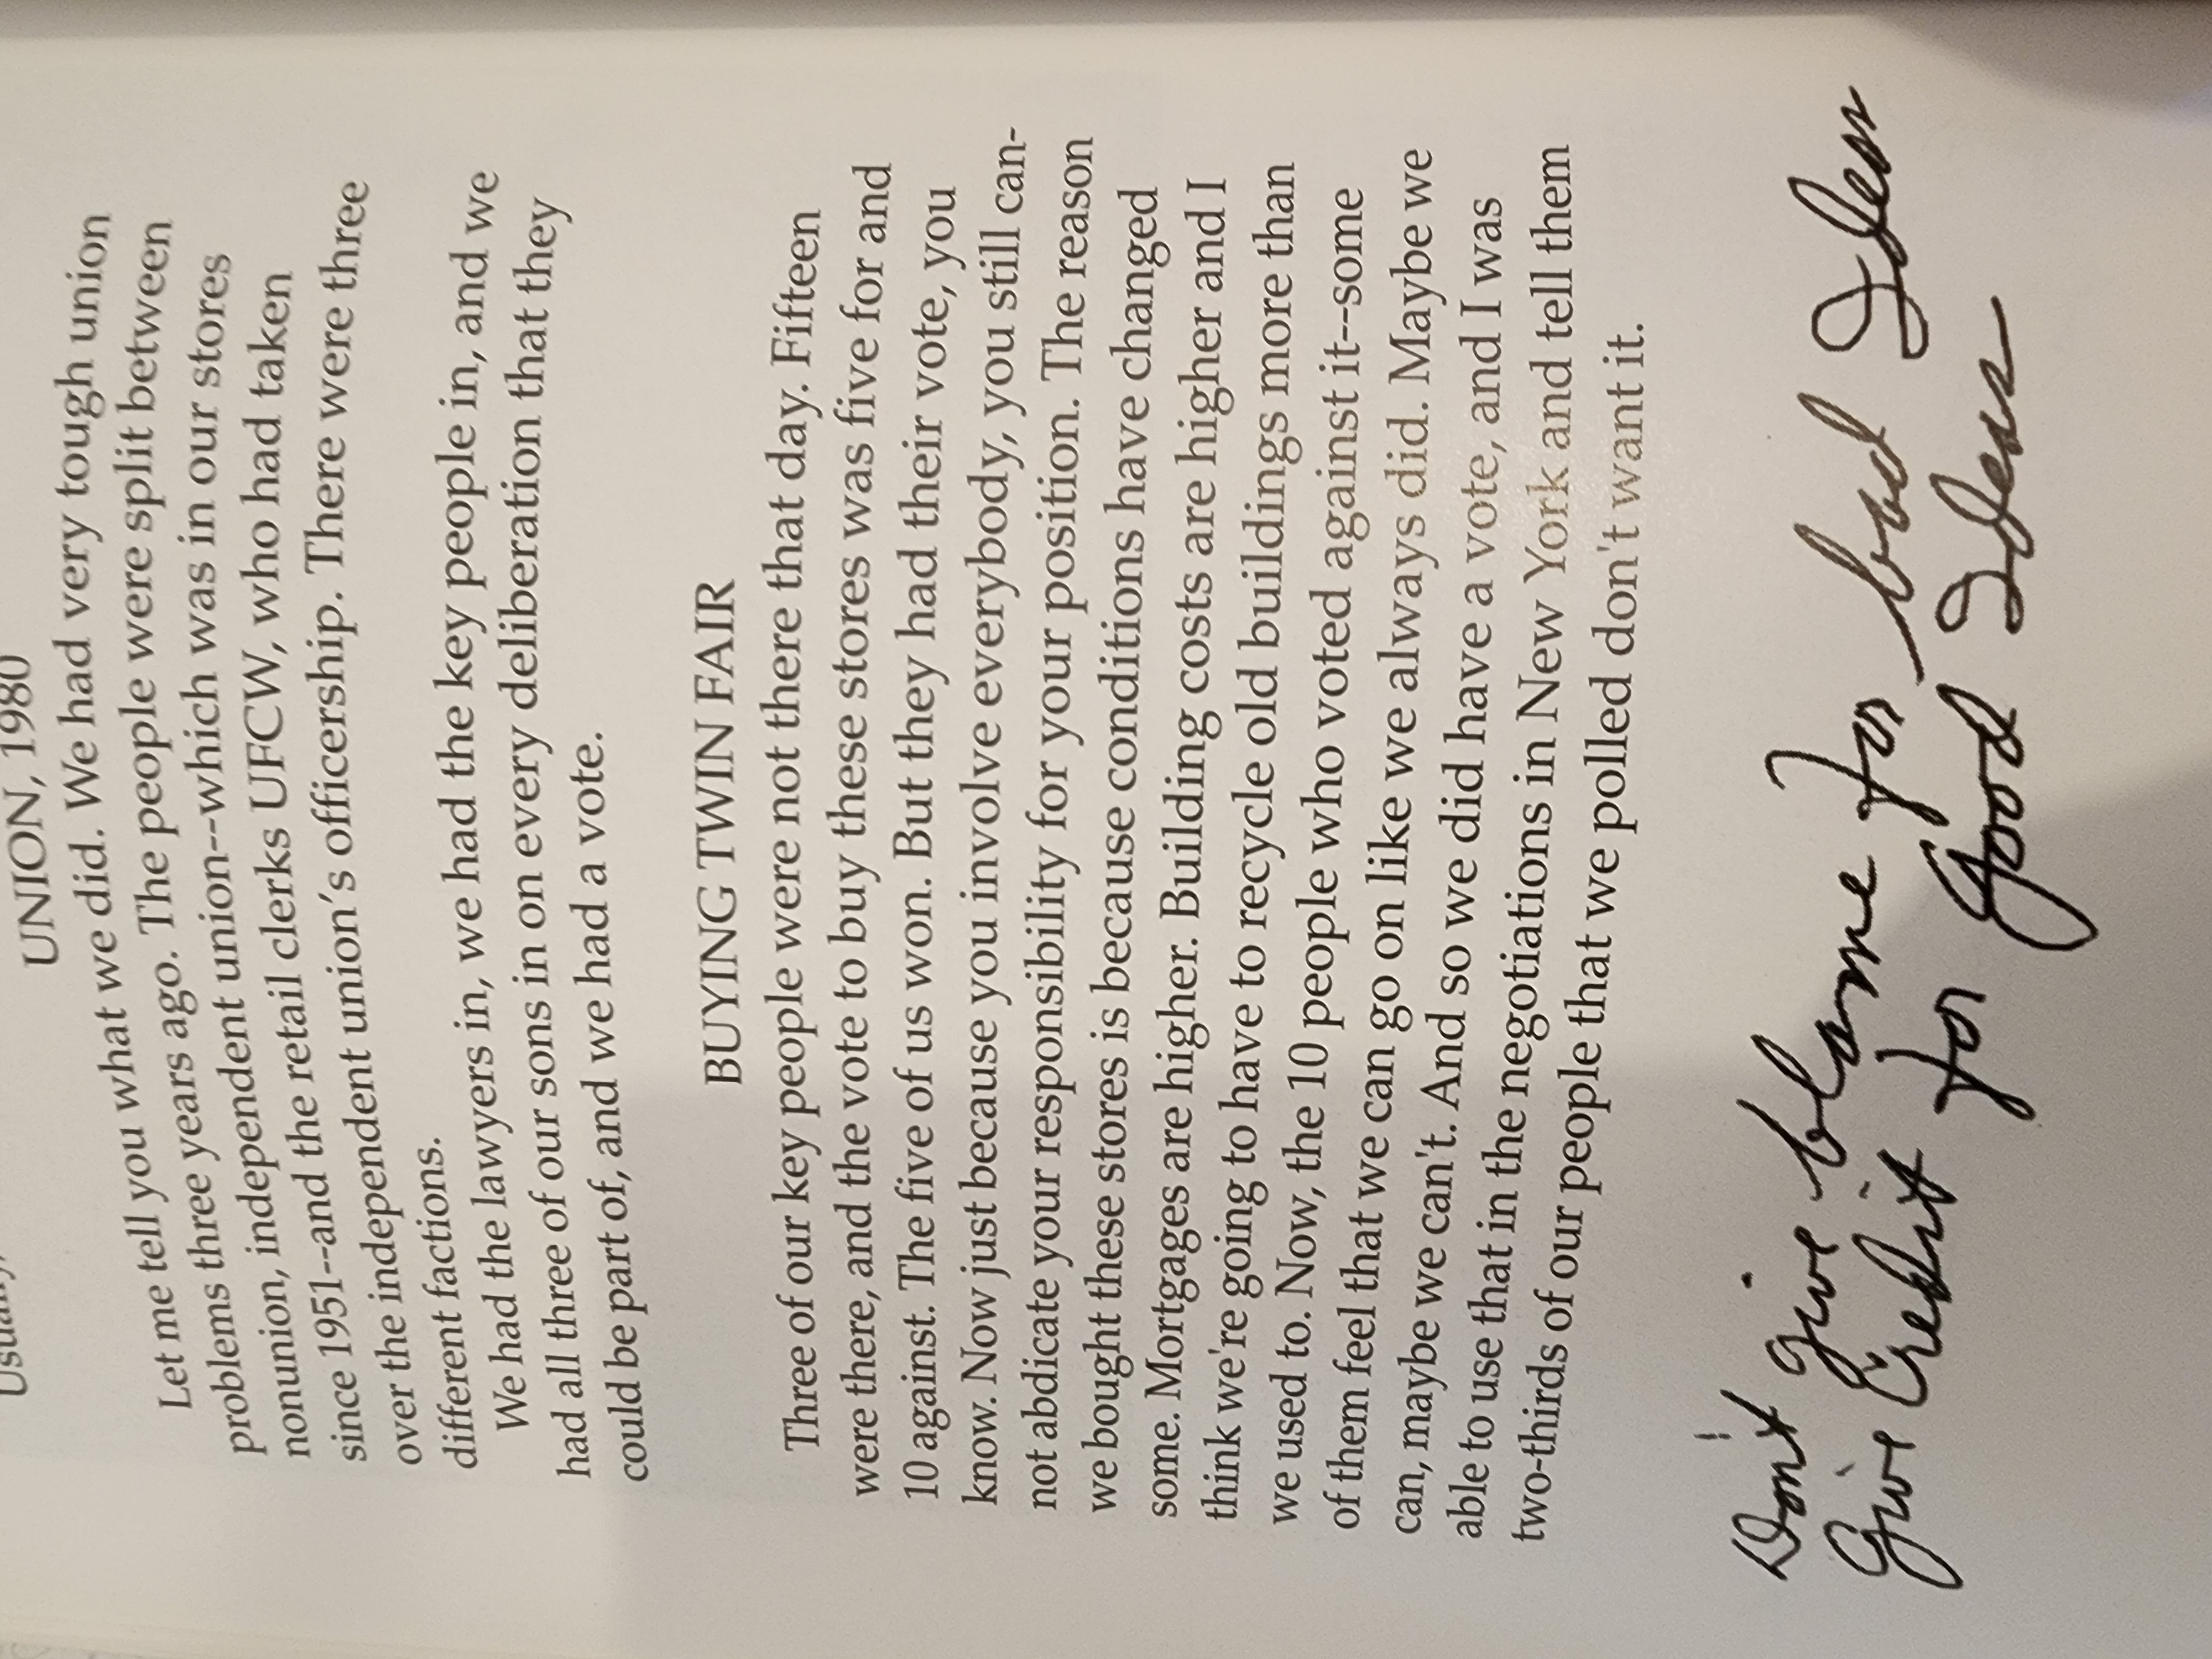 Usually,
UNION, 1980
Let me tell you what we did. We had very tough union
problems three years ago. The people were split between
nonunion, independent union--which was in our stores
since 1951--and the retail clerks UFCW, who had taken
over the independent union's officership. There were three
different factions.
We had the lawyers in, we had the key people in, and we
had all three of our sons in on every deliberation that they
could be part of, and we had a vote.
BUYING TWIN FAIR
Three of our key people were not there that day. Fifteen
were there, and the vote to buy these stores was five for and
10 against. The five of us won. But they had their vote, you
know. Now just because you involve everybody, you still can-
not abdicate your responsibility for your position. The reason
we bought these stores is because conditions have changed
some. Mortgages are higher. Building costs are higher and I
think we're going to have to recycle old buildings more than
we used to. Now, the 10 people who voted against it--some
of them feel that we can go on like we always did. Maybe we
can, maybe we can't. And so we did have a vote, and I was
able to use that in the negotiations in New York and tell them
two-thirds of our people that we polled don't want it.
Don't give blame for bad Idea
Give Credit for Good Ideas